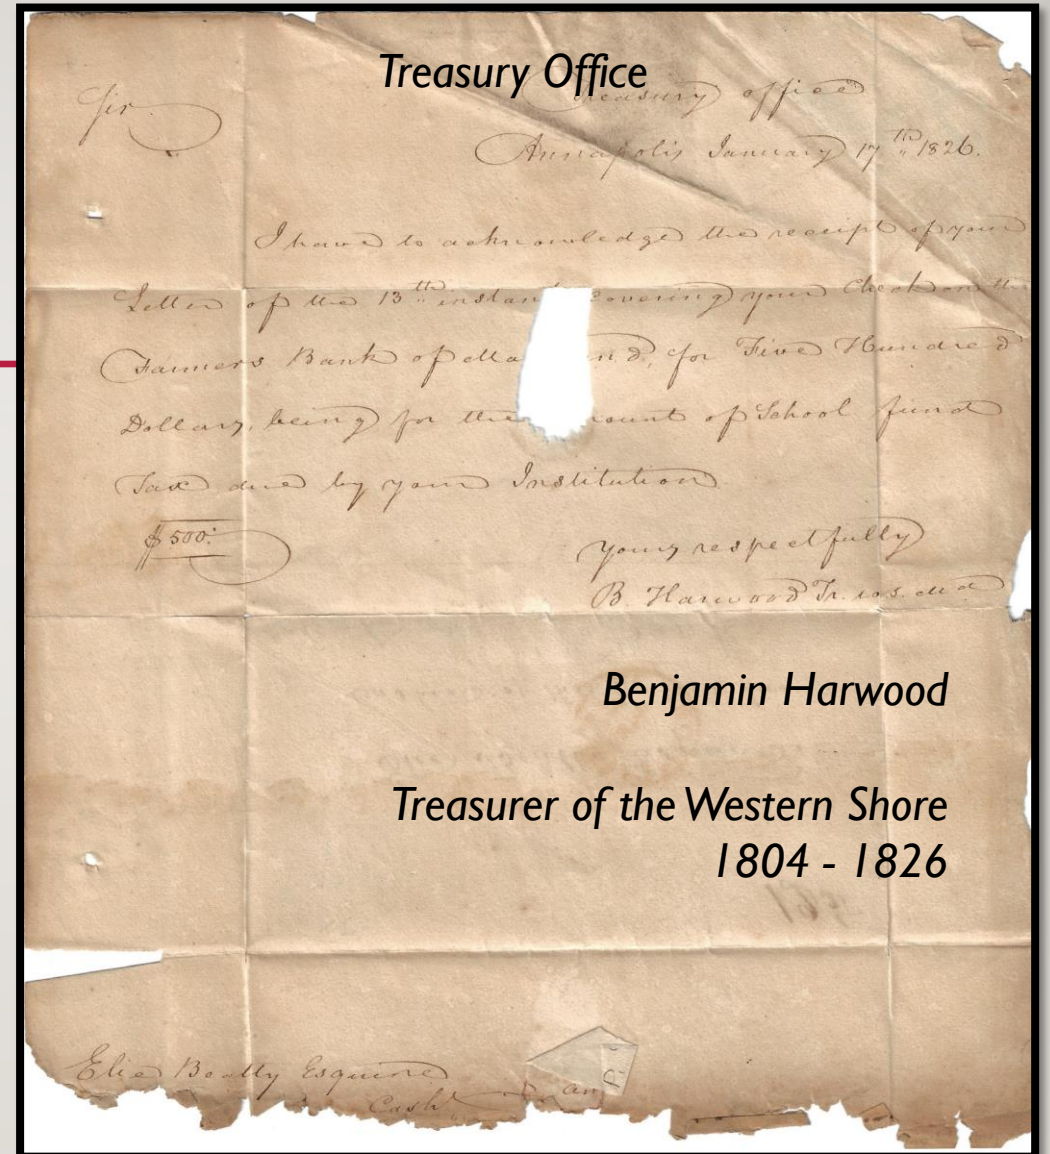 Treasury Office
Sir
Treasury office
Annapolis January 17th 1826.
I have to acknowledge the receipt of your
Letter of the 13th instant covering your Check on the
Farmers Bank of Ma nd, for Five Hundred
Dollars, being for the ount of School fund
Tax due by your Institution
$500:
Yours respectfully
B. Harwood Tr. W.S. Md
Benjamin Harwood
Treasurer of the Western Shore
1804 - 1826
Elie Beatty Esquire
Cash